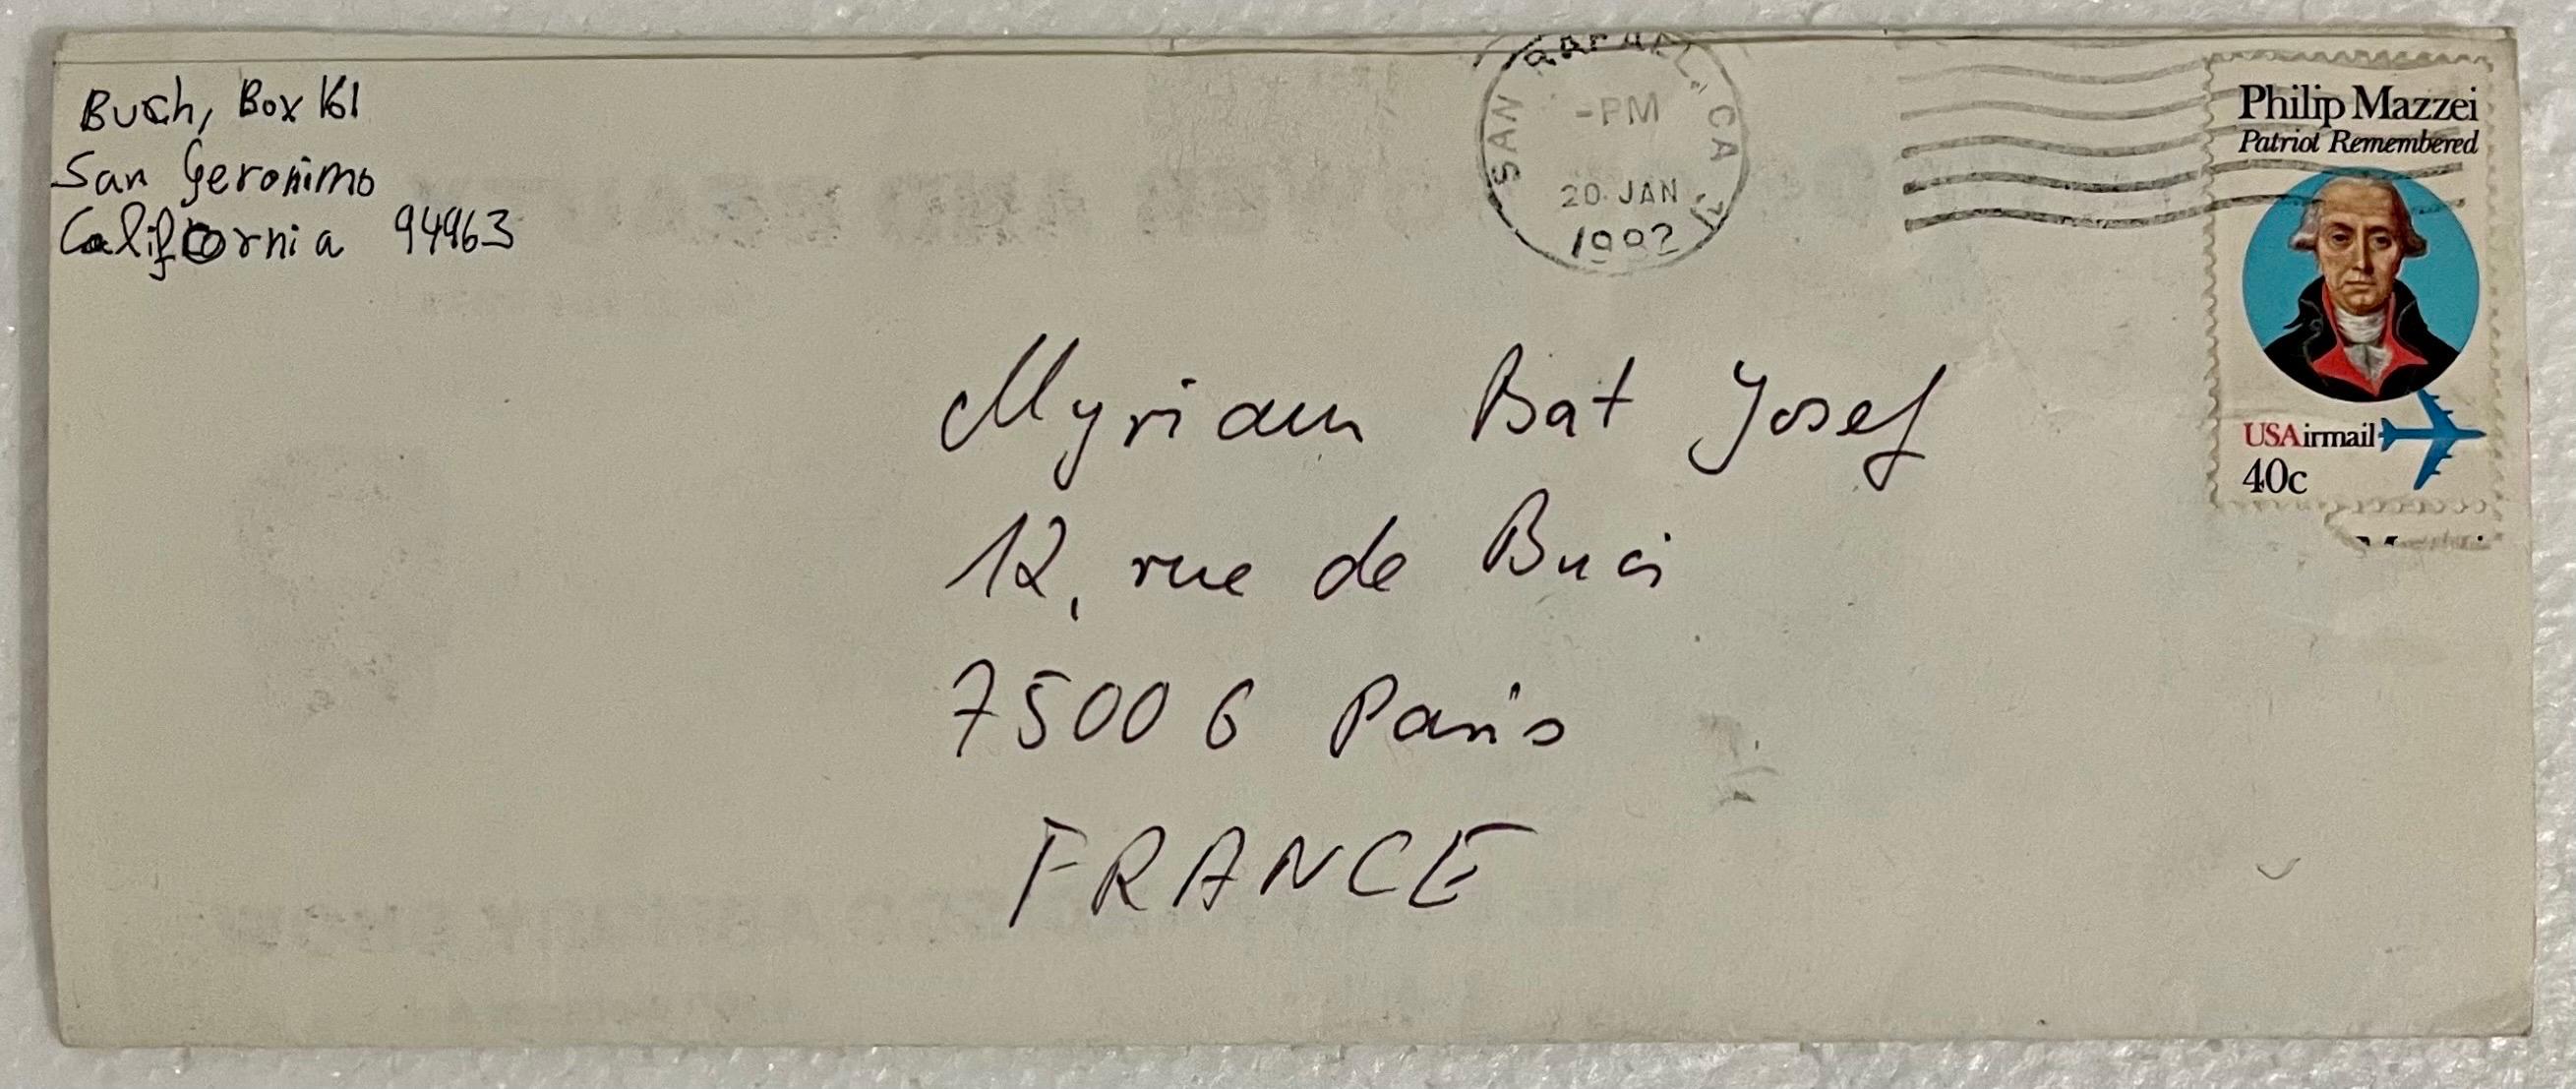 Buch, Box 161
San Geronimo
California 94963
SAN RAFAEL, CA
-PM
20 JAN
Philip Mazzei
Patriot Remembered
USAirmail
40c
Myriam Bat Josef
12, rue de Buci
75006 Paris
FRANCE